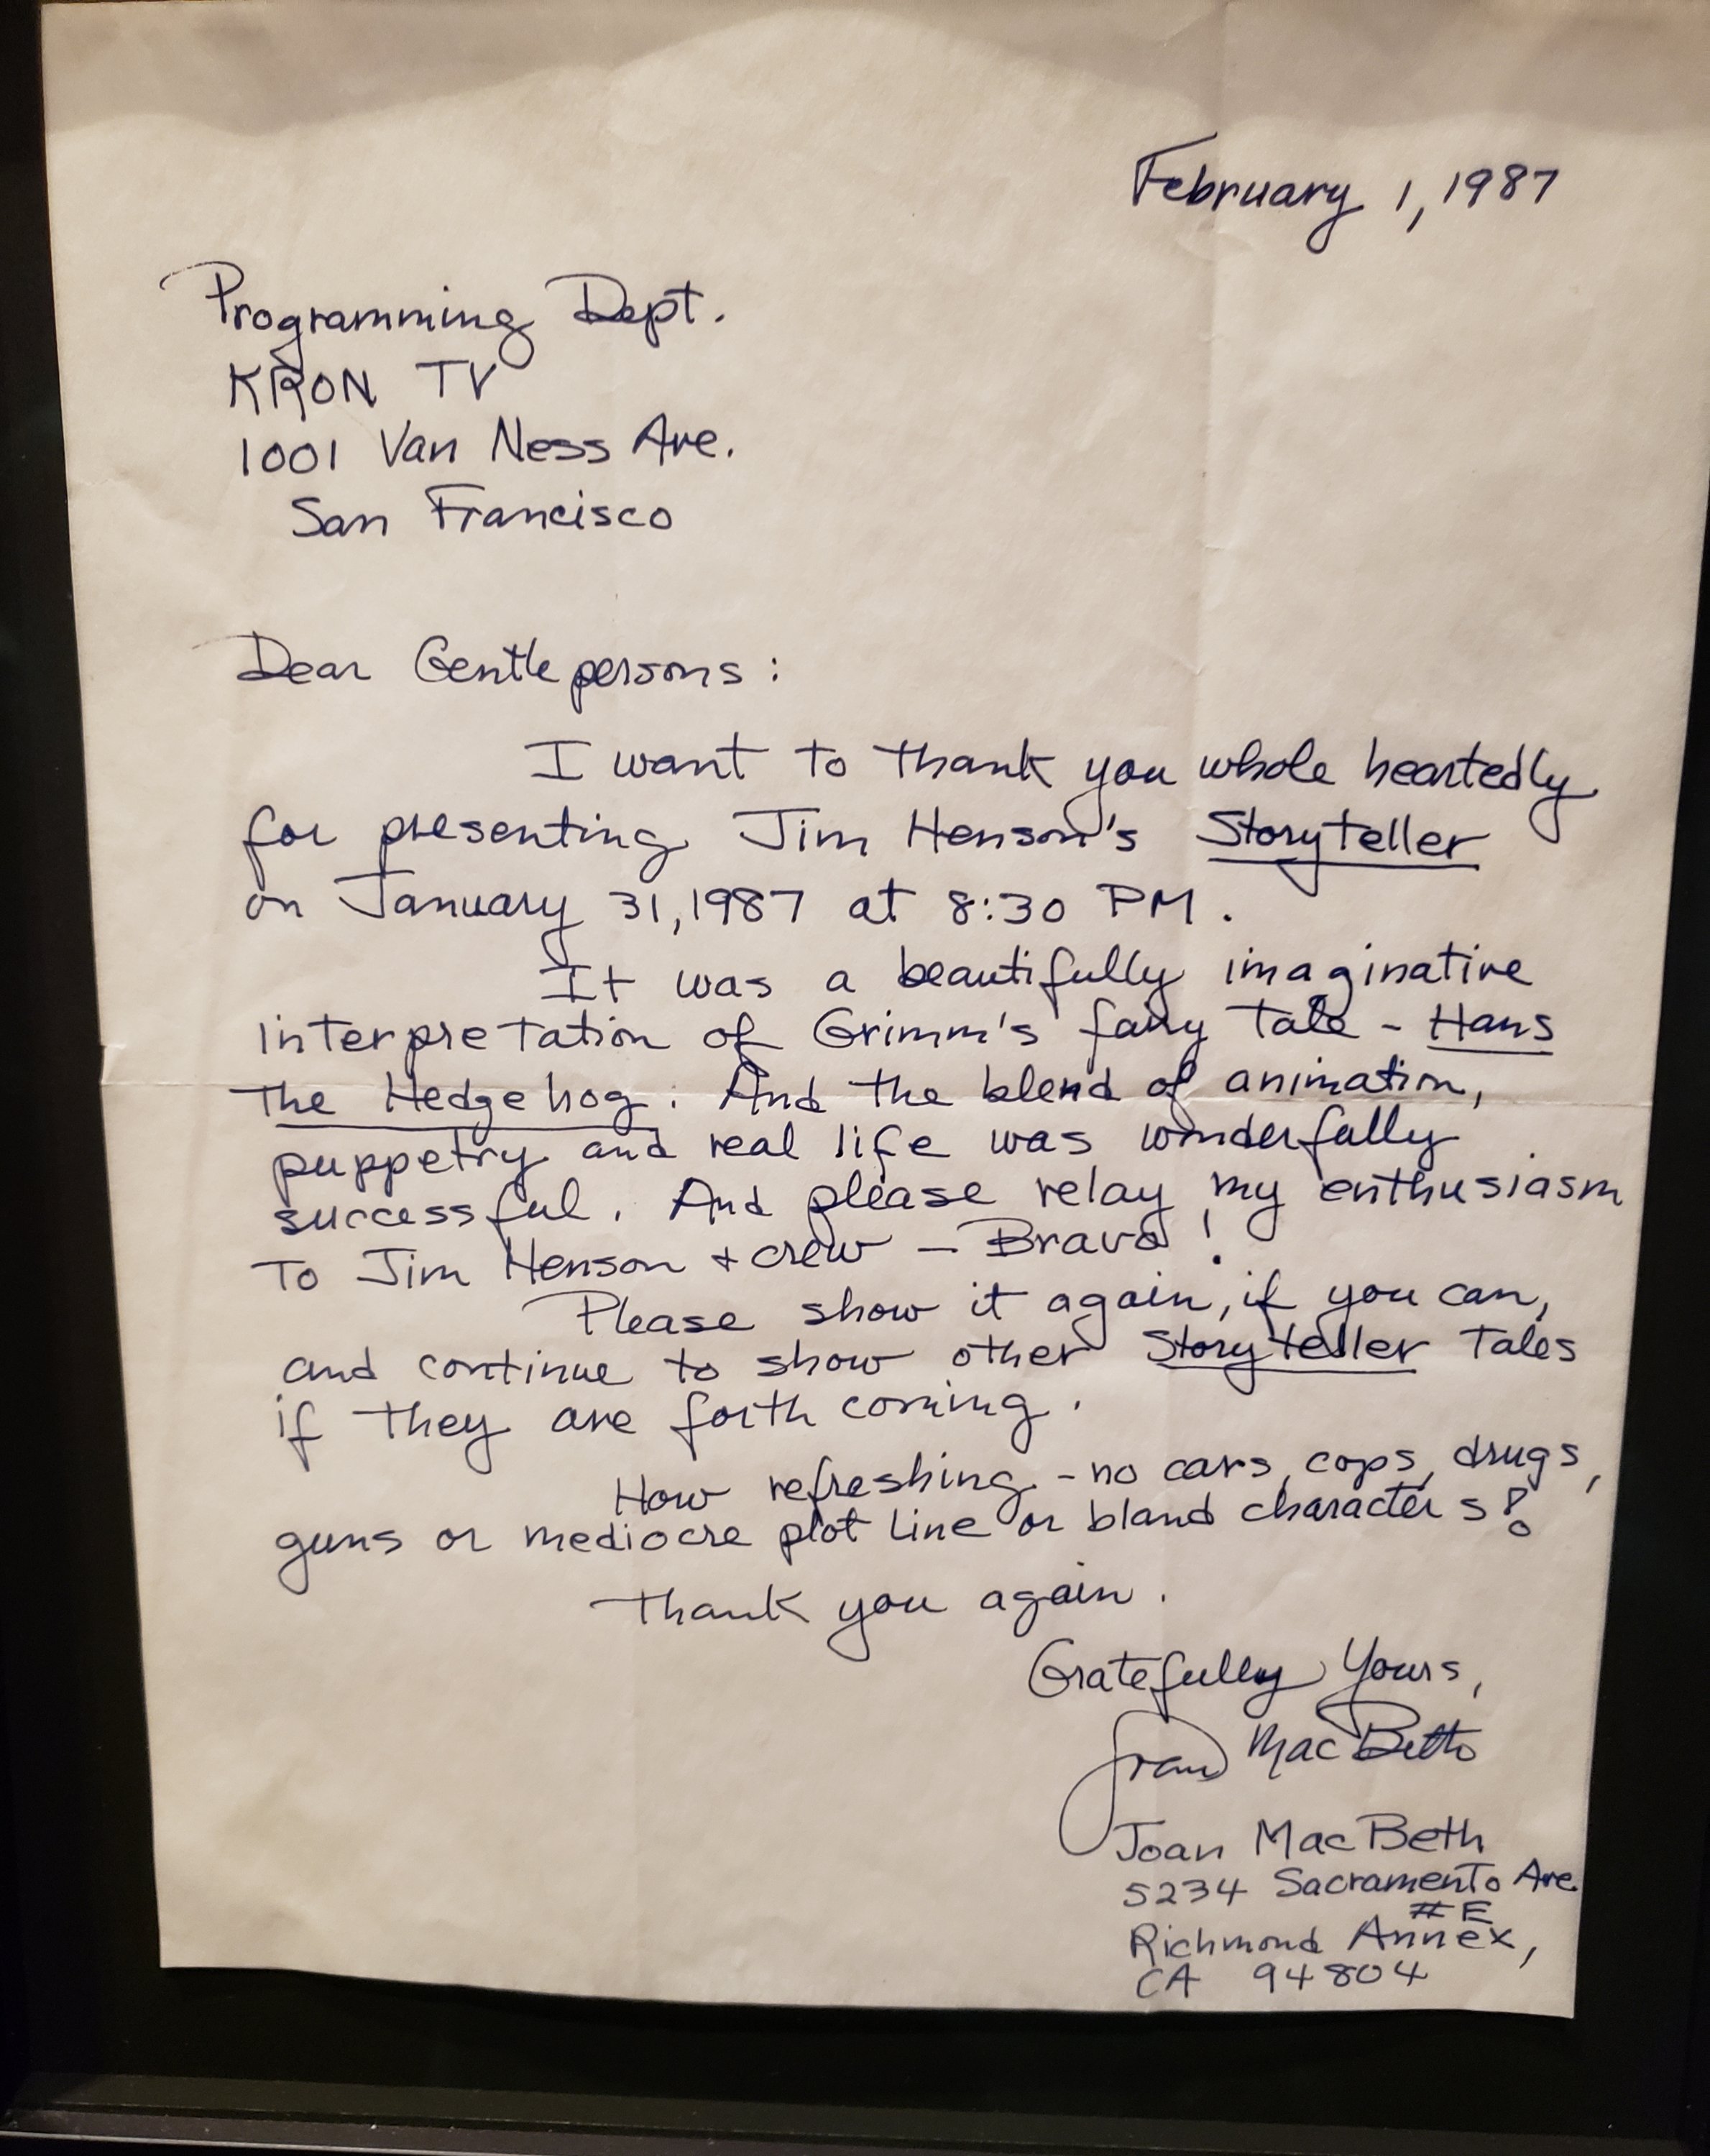 February 1, 1987
Programming Dept.
KRON TV
1001 Van Ness Ave.
San Francisco
Dear Gentlepersons:
I want to thank you whole heartedly
for presenting Jim Henson's Storyteller
on January 31, 1987 at 8:30 PM.
It was a beautifully imaginative
interpretation of Grimm's fairy tale - Hans
the Hedgehog. And the blend of animation,
puppetry and real life was wonderfully
successful. And please relay my enthusiasm
to Jim Henson + crew - Bravo!
Please show it again, if you can,
and continue to show other Storyteller tales
if they are forth coming.
How refreshing - no cars, cops, drugs,
guns or mediocre plot line or bland characters!
Thank you again.
Gratefully Yours,
Joan MacBeth
Joan MacBeth
5234 Sacramento Ave.
# E
Richmond Annex,
CA 94804